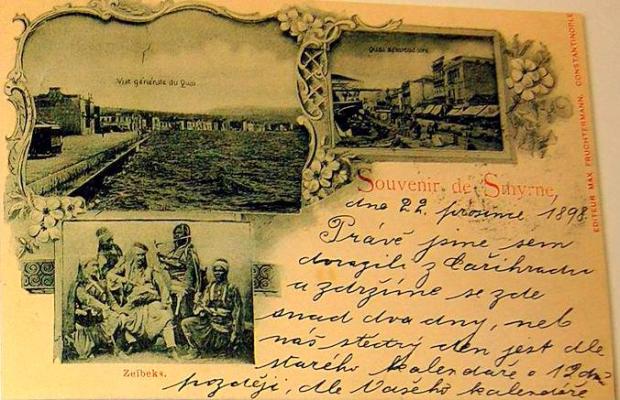 Vue générale du Quai
EDITEUR MAX FRUCHTERMANN, CONSTANTINOPLE
Souvenir de Smyrne,
dne 22. prosince 1898
Právě jsme sem
dorazili z Cařihradu
a zdržíme se zde
snad dva dny, neb
náš štědrý den jest dle
starého kalendáře o 12 dní
později, dle Vašeho kalendáře
Zeibeks.